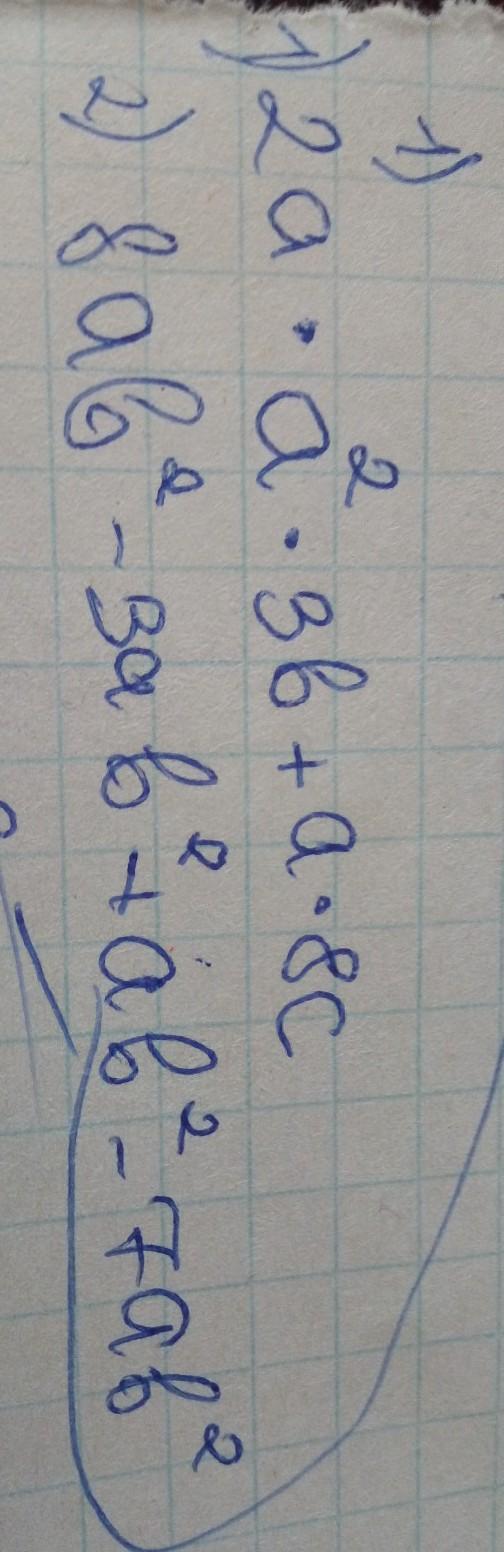 1)
1) 2a · a² · 3b + a · 8c
2) 8ab² - 3ab² + ab² - 7ab²